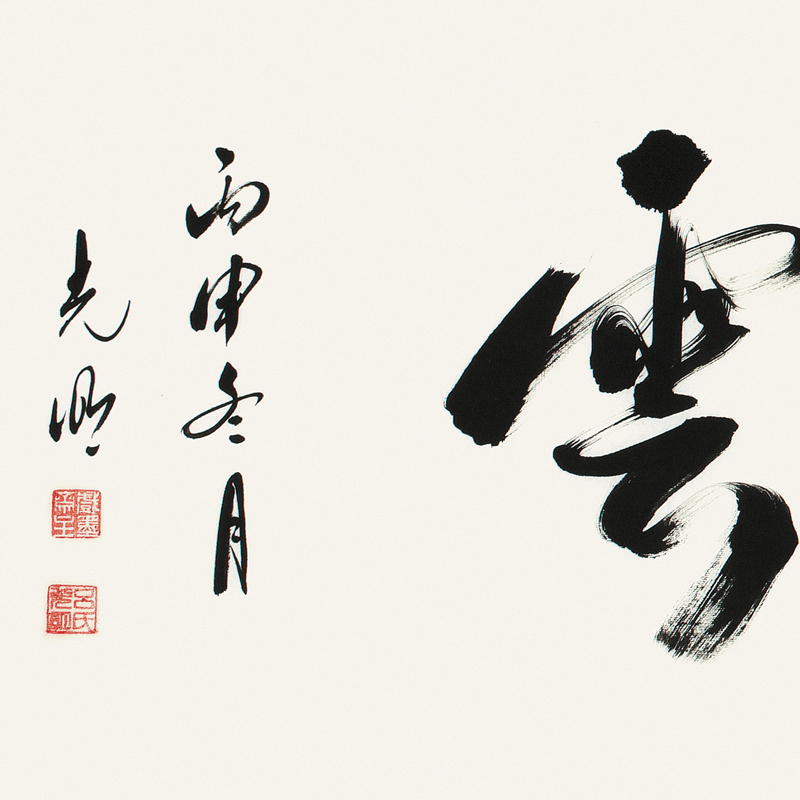 雲
丙申冬月
光明